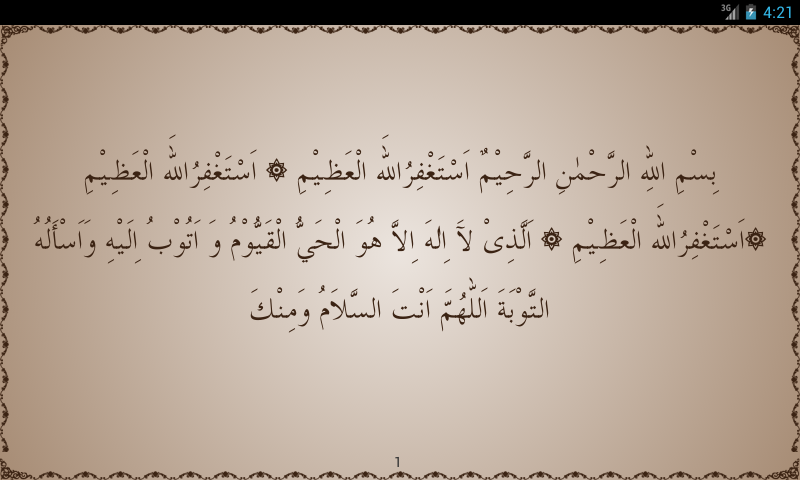 3G 4:21
بِسْمِ اللهِ الرَّحْمٰنِ الرَّحِيْمٌ اَسْتَغْفِرُاللهَ الْعَظِـيْمِ ۞ اَسْتَغْفِرُاللهَ الْعَظِـيْمِ
۞اَسْتَغْفِرُاللهَ الْعَظِـيْمِ ۞ اَلَّذِىْ لآَ اِلٰهَ اِلاَّ هُوَ الْحَيُّ الْقَيُّوْمُ وَ اَتُوْبُ اِلَيْهِ وَاَسْأَلُهُ
التَّوْبَةَ اَللّٰهُمَّ اَنْتَ السَّلاَمُ وَمِنْكَ
1